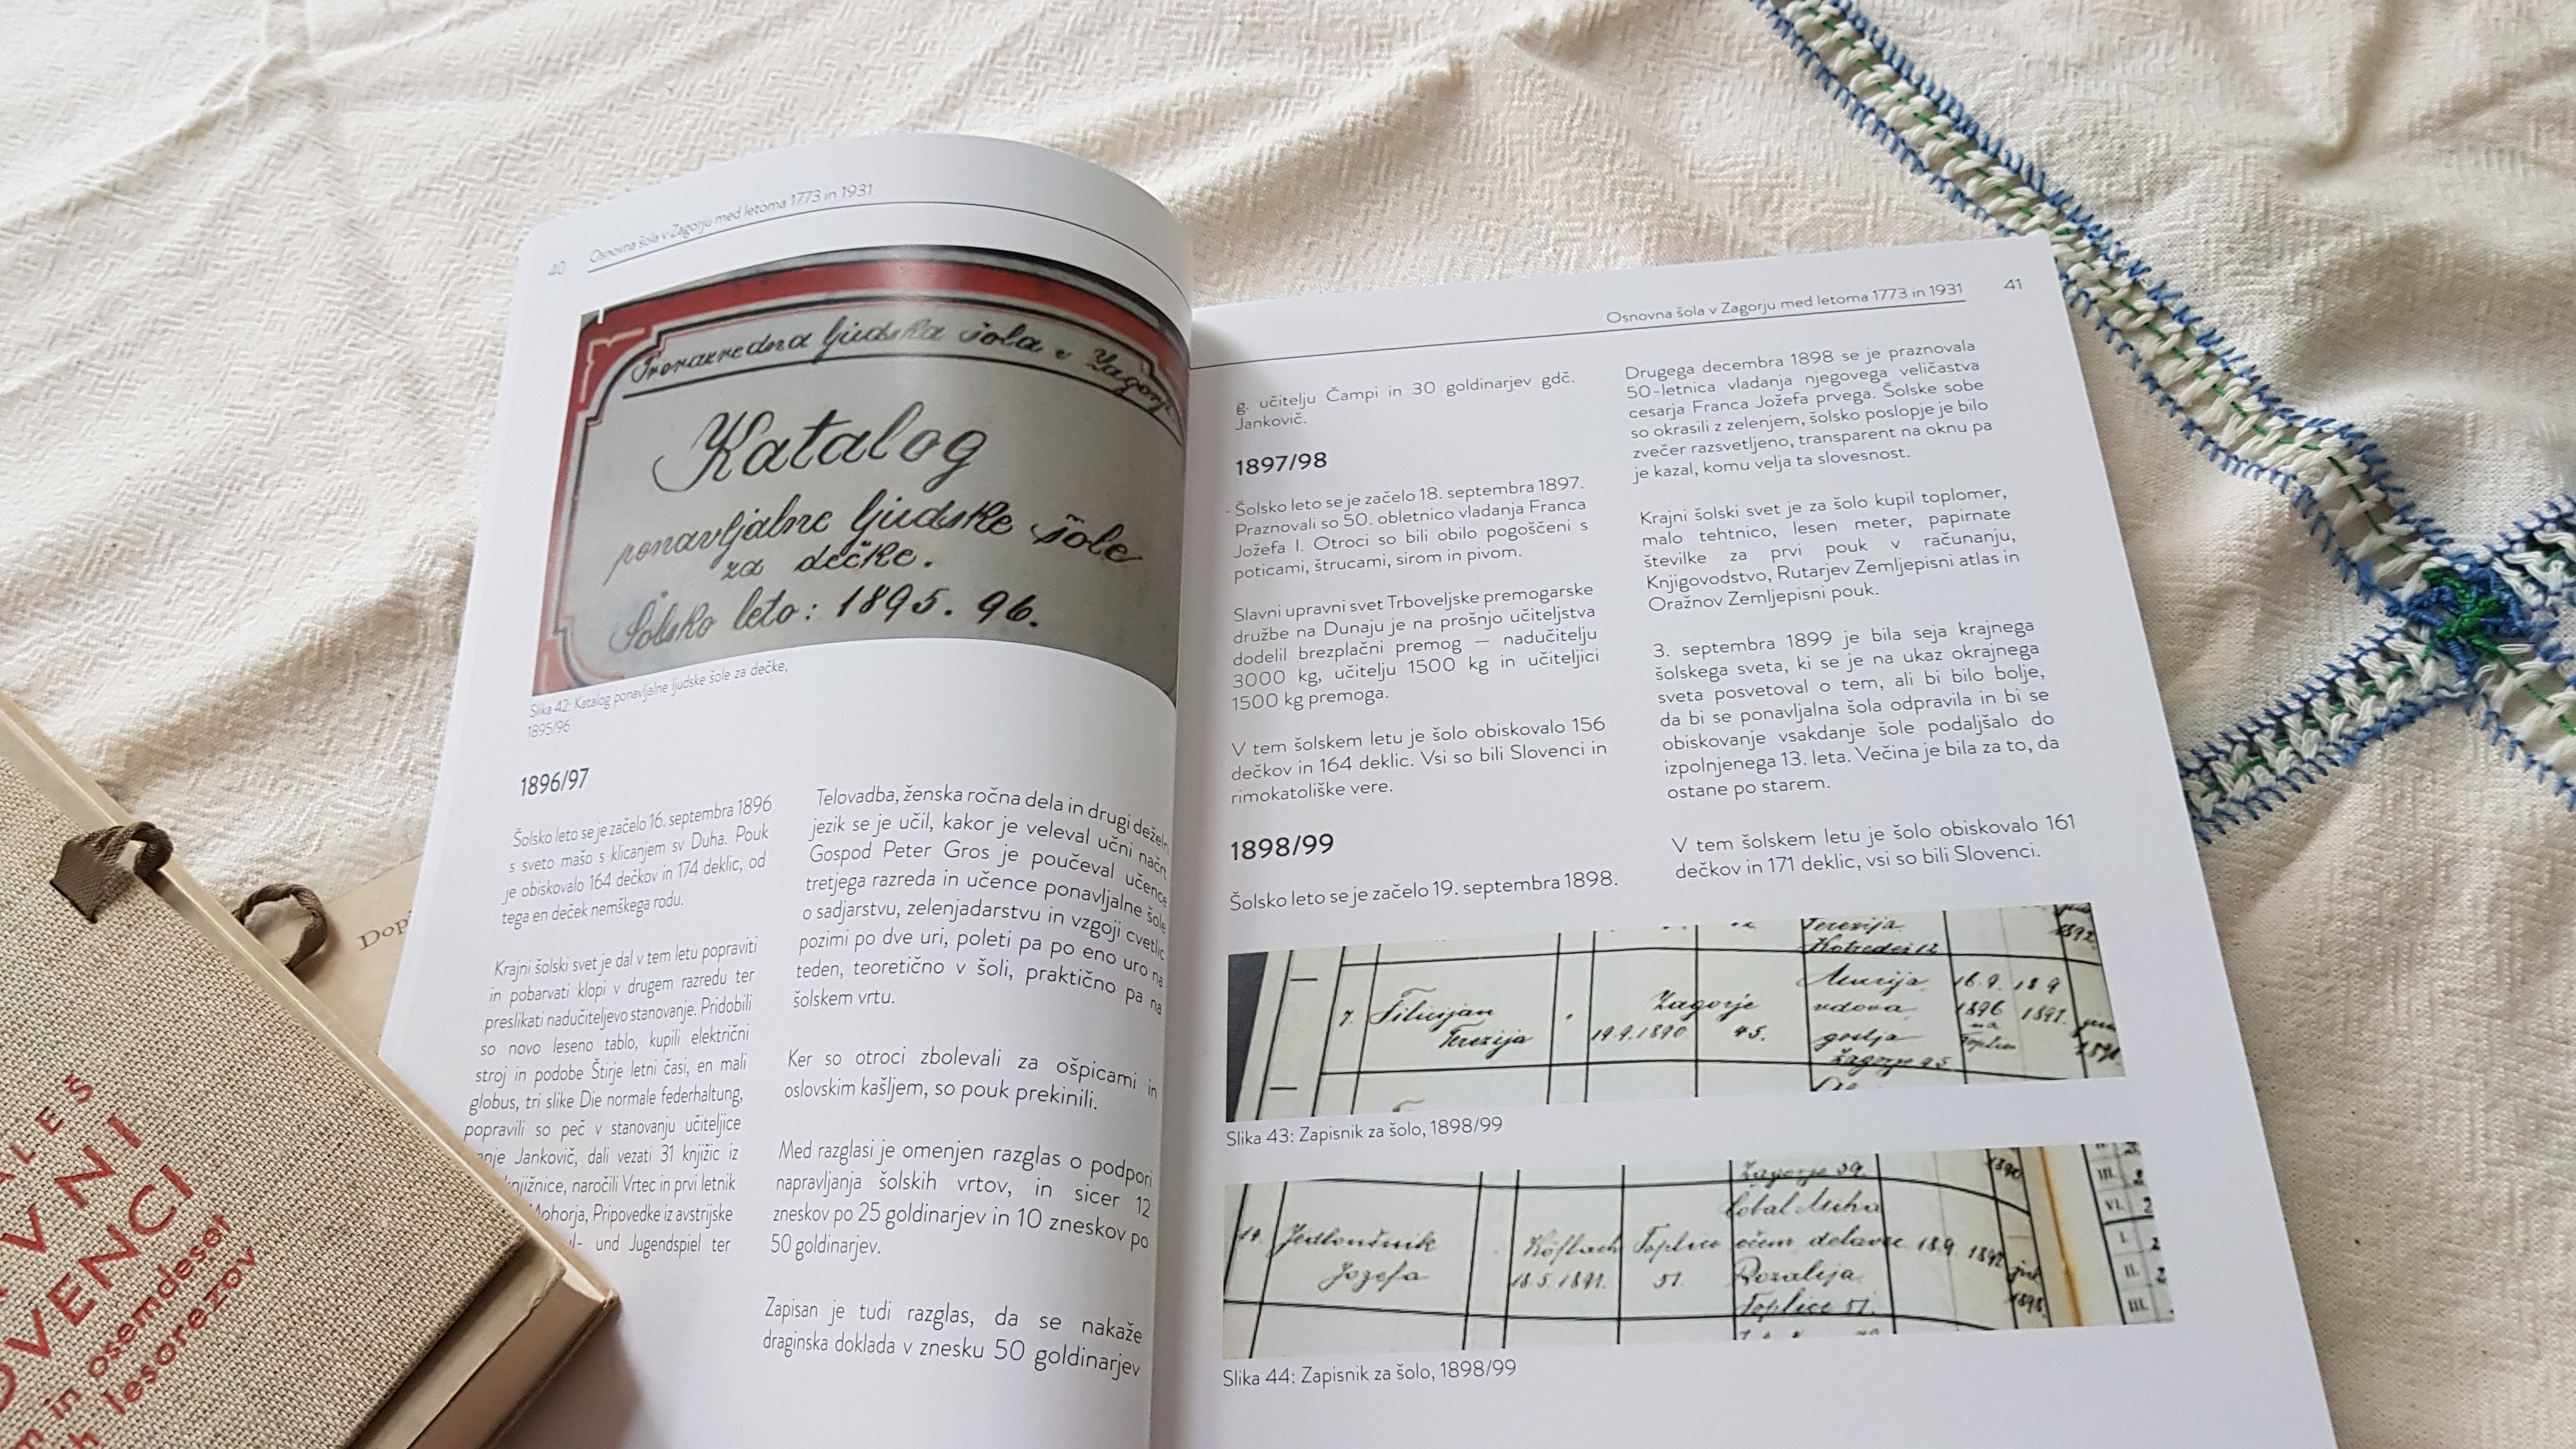 40
Osnovna šola v Zagorju med letoma 1773 in 1931
ljudska šola v Zagorju
Katalog
ponavljalne ljudske šole
za dečke.
Šolsko leto: 1895. 96.
Slika 42: Katalog ponavljalne ljudske šole za dečke,
1895/96
1896/97
Šolsko leto se je začelo 16. septembra 1896
s sveto mašo s klicanjem sv Duha. Pouk
je obiskovalo 164 dečkov in 174 deklic, od
tega en deček nemškega rodu.
Krajni šolski svet je dal v tem letu popraviti
in pobarvati klopi v drugem razredu ter
preslikati nadučiteljevo stanovanje. Pridobili
so novo leseno tablo, kupili električni
stroj in podobe Štirje letni časi, en mali
globus, tri slike Die normale federhaltung,
popravili so peč v stanovanju učiteljice
Jankovič, dali vezati 31 knjižic iz
knjižnice, naročili Vrtec in prvi letnik
Mohorja, Pripovedke iz avstrijske
und Jugendspiel ter
Telovadba, ženska ročna dela in drugi deželn
jezik se je učil, kakor je veleval učni načrt.
Gospod Peter Gros je poučeval učence
tretjega razreda in učence ponavljalne šole
o sadjarstvu, zelenjadarstvu in vzgoji cvetlic
pozimi po dve uri, poleti pa po eno uro na
teden, teoretično v šoli, praktično pa na
šolskem vrtu.
Ker so otroci zbolevali za ošpicami in
oslovskim kašljem, so pouk prekinili.
Med razglasi je omenjen razglas o podpori
napravljanja šolskih vrtov, in sicer 12
zneskov po 25 goldinarjev in 10 zneskov po
50 goldinarjev.
Zapisan je tudi razglas, da se nakaže
draginska doklada v znesku 50 goldinarjev
Osnovna šola v Zagorju med letoma 1773 in 1931
41
g. učitelju Čampi in 30 goldinarjev gdč.
Jankovič.
1897/98
- Šolsko leto se je začelo 18. septembra 1897.
Praznovali so 50. obletnico vladanja Franca
Jožefa I. Otroci so bili obilo pogoščeni s
poticami, štrucami, sirom in pivom.
Slavni upravni svet Trboveljske premogarske
družbe na Dunaju je na prošnjo učiteljstva
dodelil brezplačni premog — nadučitelju
3000 kg, učitelju 1500 kg in učiteljici
1500 kg premoga.
V tem šolskem letu je šolo obiskovalo 156
dečkov in 164 deklic. Vsi so bili Slovenci in
rimokatoliške vere.
1898/99
Šolsko leto se je začelo 19. septembra 1898.
Drugega decembra 1898 se je praznovala
50-letnica vladanja njegovega veličastva
cesarja Franca Jožefa prvega. Šolske sobe
so okrasili z zelenjem, šolsko poslopje je bilo
zvečer razsvetljeno, transparent na oknu pa
je kazal, komu velja ta slovesnost.
Krajni šolski svet je za šolo kupil toplomer,
malo tehtnico, lesen meter, papirnate
številke za prvi pouk v računanju,
Knjigovodstvo, Rutarjev Zemljepisni atlas in
Oražnov Zemljepisni pouk.
3. septembra 1899 je bila seja krajnega
šolskega sveta, ki se je na ukaz okrajnega
sveta posvetoval o tem, ali bi bilo bolje,
da bi se ponavljalna šola odpravila in bi se
obiskovanje vsakdanje šole podaljšalo do
izpolnjenega 13. leta. Večina je bila za to, da
ostane po starem.
V tem šolskem letu je šolo obiskovalo 161
dečkov in 171 deklic, vsi so bili Slovenci.
Terezija
1892
7. Zagorje Marija 16.9. 18 9
Terezija 19.9.1890 45. vdova 1896 1897.
gostja Toplice
Zagorje 45
Slika 43: Zapisnik za šolo, 1898/99
Zagorje 39. 1890
14. Köflach Toplice delavec 18.9. 1897
Jozefa 18.5.1891. 51. Rozalija
Toplice 51. 1898
Slika 44: Zapisnik za šolo, 1898/99
Dop
in osemdeset
lesorezov